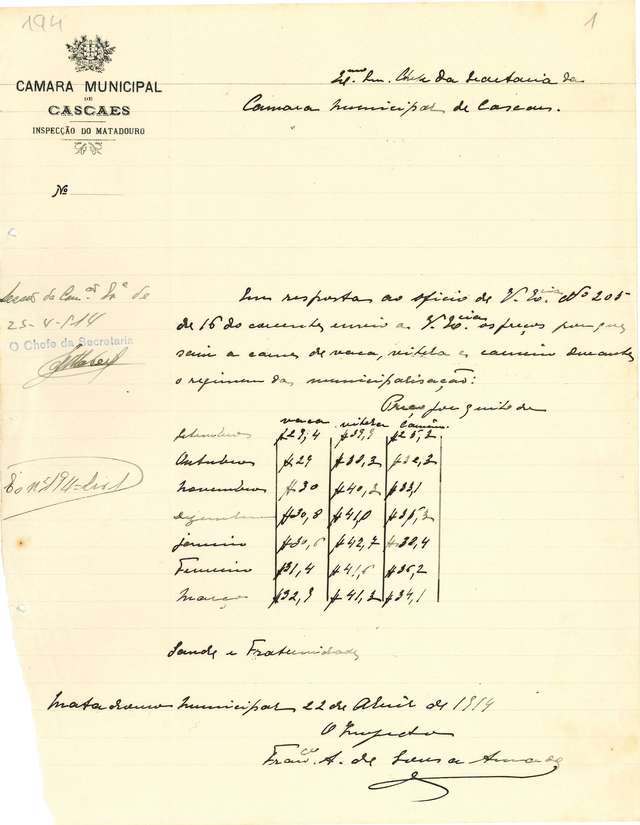 194
1
CAMARA MUNICIPAL
DE
CASCAES
INSPECÇÃO DO MATADOURO
No
Exmo Snr. Chefe da Secretaria da
Camara Municipal de Cascaes.
de
25-4-914
O Chefe da Secretaria
Em resposta ao oficio de V. Excia No 205
de 16 do corrente envio a V. Excia os preços porque
saiu a carne de vaca, vitela e carneiro durante
o regimen da municipalisação:
Preço por quilo de
vaca vitela carneiro
Setembro $29,4 $39,9
Outubro $29 $38,3 $32,3
Novembro $30 $40,3 $33,1
Dezembro $30,8 $41,0 $35,3
Janeiro $30,6 $42,7 $38,4
Fevereiro $31,4 $41,6 $36,2
Março $32,9 $41,3 $34,1
Saude e Fraternidade
Matadouro Municipal 22 de Abril de 1914
O Inspector
Franco. A. de Sousa